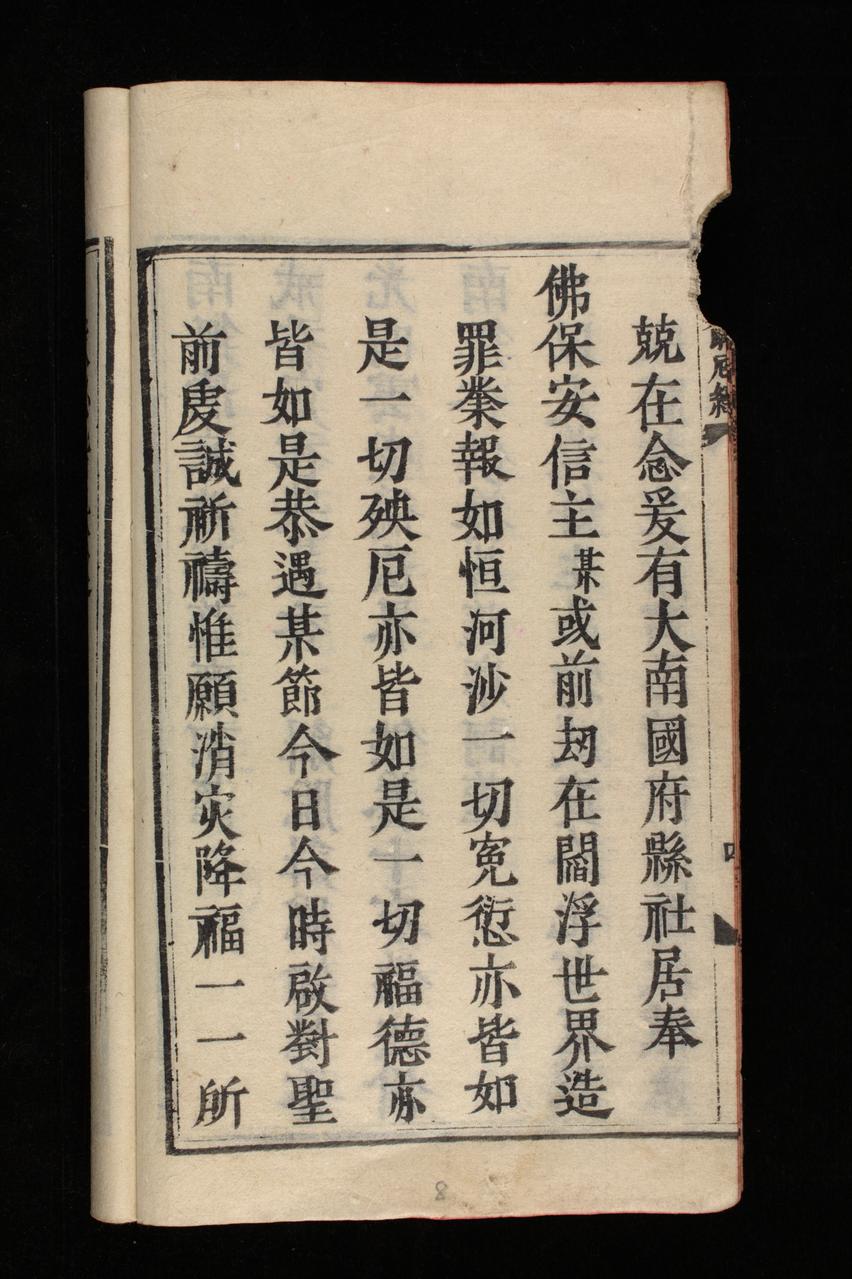 兢在念爰有大南國府縣社居奉
佛保安信主某或前刧在閻浮世界造
罪業報如恒河沙一切寃愆亦皆如
是一切殃厄亦皆如是一切福德亦
皆如是恭遇某節今日今時啟對聖
前虔誠祈禱惟願消灾降福一一所
8